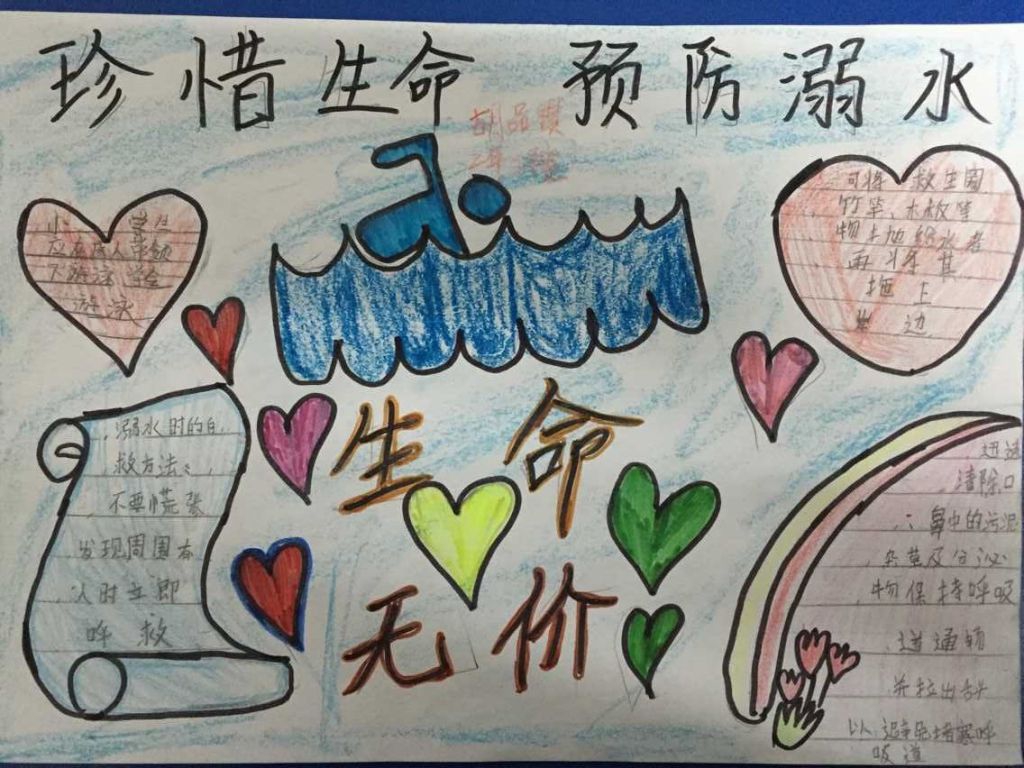 珍惜生命 预防溺水
胡品
小 学生
应在成人带领
下游泳 学会
游泳
可将 救生圈
竹竿、木板等
物 给水者
再将其
拖上
岸边
生命
无价
溺水时的自
救方法:
不要慌张
发现周围有
人时立即
呼救
迅速
清除口
、鼻中的污泥
杂草及分泌
物保持呼吸
道通畅
并拉出舌头
以避免堵塞呼
吸道